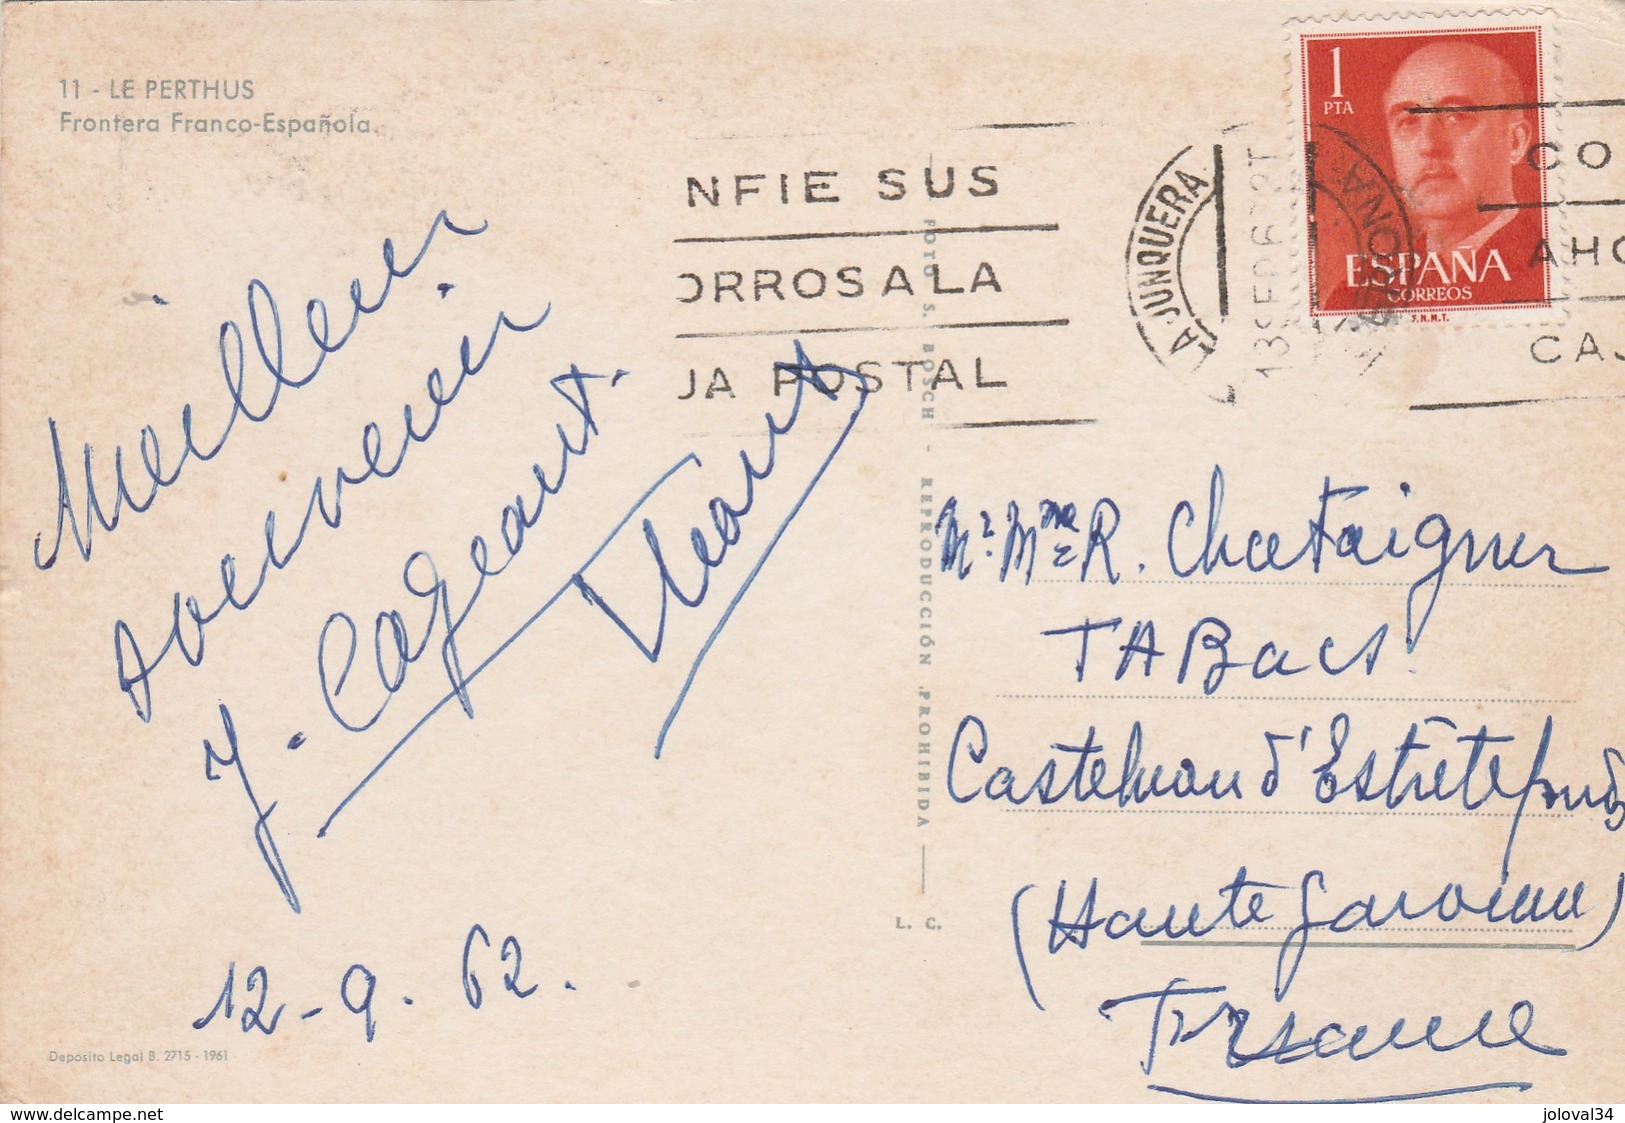 11 - LE PERTHUS
Frontera Franco-Española.
1
PTA
ESPAÑA
CORREOS
F.N.M.T.
NFIE SUS
ORROS A LA
JA POSTAL
LA JUNQUERA
13 SEP 62
CO
AHO
CAJ
FOTO S. BOSCH - REPRODUCCIÓN PROHIBIDA
L. C.
Meilleur
souvenir
J. Cazeaut.
12-9.62.
Mr. Mme R. Chataigner
TABacs.
Castelnau d'Estrétefonds
(Haute Garonne)
France
Depósito Legal B. 2715 - 1961
www.delcampe.net
joloval34